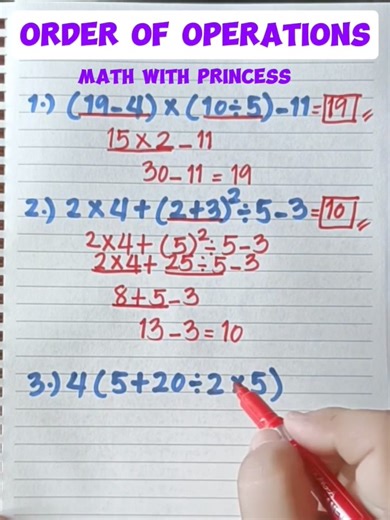 ORDER OF OPERATIONS
MATH WITH PRINCESS
1.) (19-4) × (10÷5) - 11 = 19
15 × 2 - 11
30 - 11 = 19
2.) 2 × 4 + (2+3)² ÷ 5 - 3 = 10
2 × 4 + (5)² ÷ 5 - 3
2 × 4 + 25 ÷ 5 - 3
8 + 5 - 3
13 - 3 = 10
3.) 4 (5 + 20 ÷ 2 × 5)